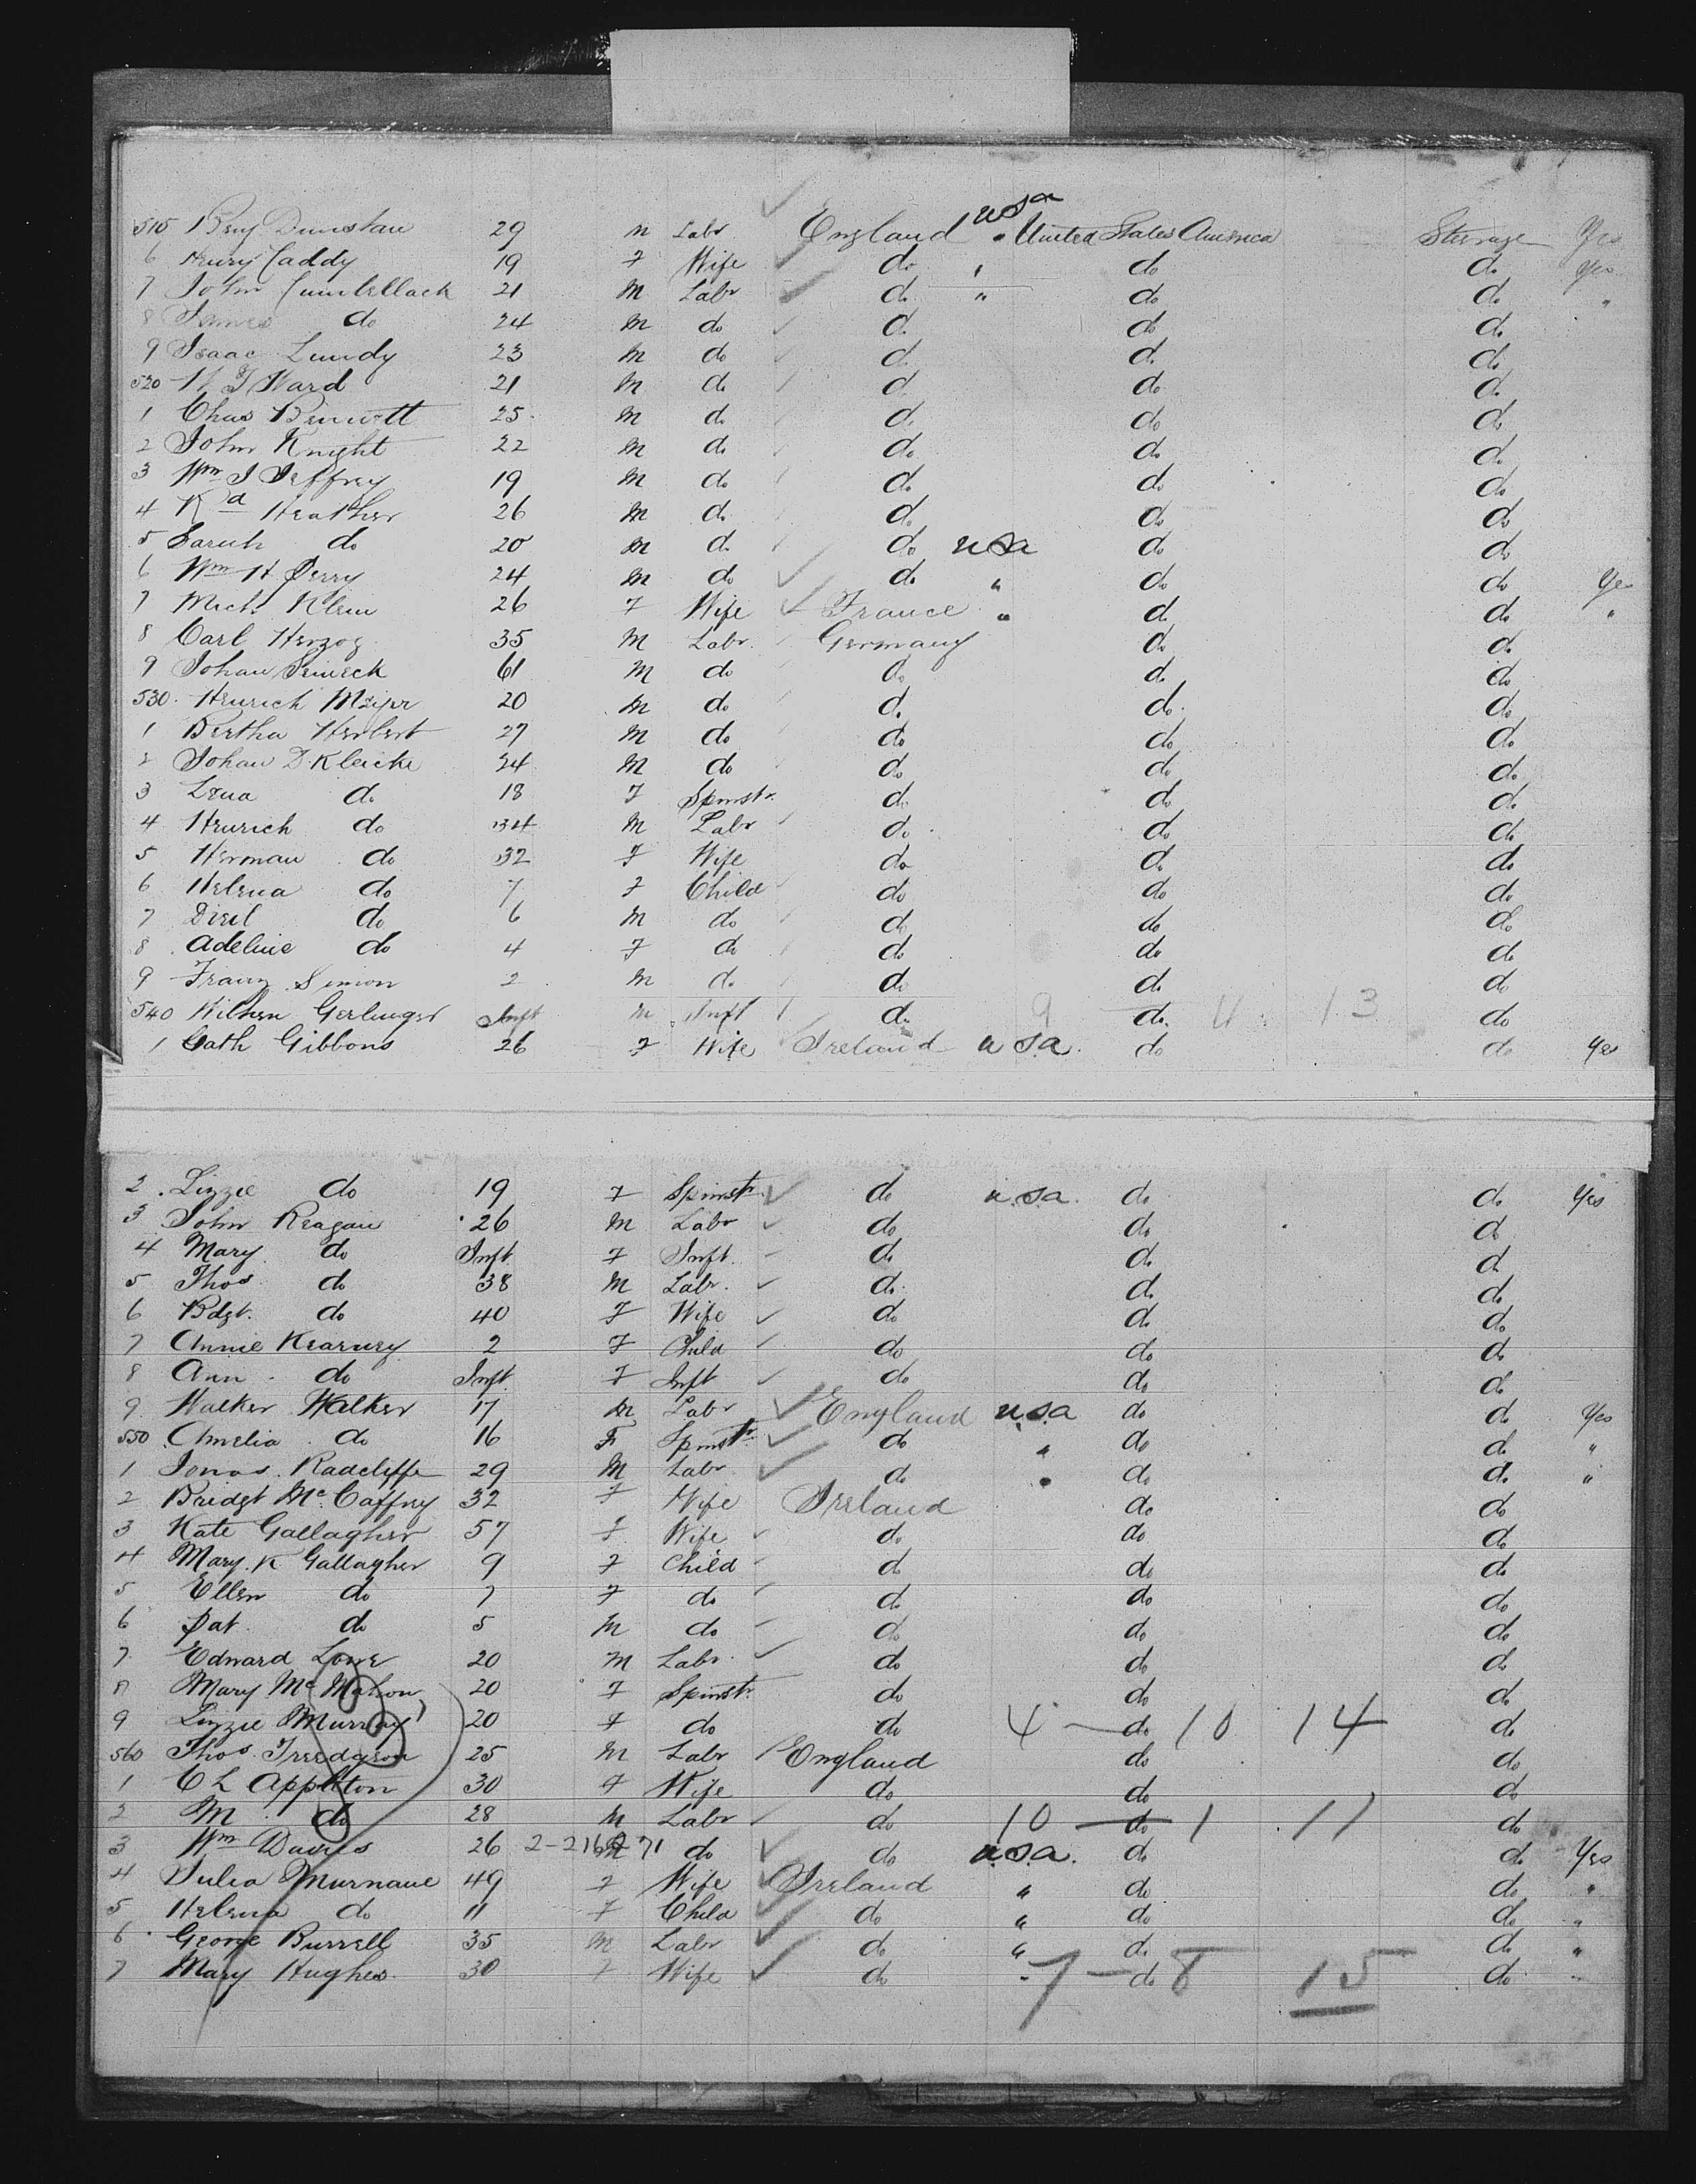 515 Benj Dunstan 29 m Labr England usa United States America Steerage Yes
6 Henry Caddy 19 F Wife do " do do Yes
7 John Cumbellack 21 M Labr do " do do "
8 James do 24 M do do do do
9 Isaac Lundy 23 M do do do do
520 W J Ward 21 M do do do do
1 Chas Bennett 25 M do do do do
2 John Knight 22 M do do do do
3 Wm J Jeffrey 19 M do do do do
4 Rd Heather 26 M do do do do
5 Sarah do 20 M do do usa do do
6 Wm H Perry 24 M do do " do do Yes
7 Mich Klein 26 F Wife France " do do "
8 Carl Herzog 35 M Labr Germany do do
9 Johan 61 M do do do do
530 Henrich Meijer 20 M do do do do
1 Bertha Herbert 27 M do do do do
2 Johan D Kleicke 24 M do do do do
3 Lena do 18 F Spinstr do do do
4 Henrich do 34 M Labr do do do
5 Herman do 32 F Wife do do do
6 Helena do 7 F Child do do do
7 do 6 M do do do do
8 Adeline do 4 F do do do do
9 Franz Simon 2 M do do do do
540 Gerlinger Inft M Inft do 9 do 4 13 do
1 Cath Gibbons 26 F Wife Ireland usa do do Yes
2 Lizzie do 19 F Spinstr do usa do do Yes
3 John Reagan 26 M Labr do do do
4 Mary do Inft F Inft do do do
5 Thos do 38 M Labr do do do
6 Bdgt do 40 F Wife do do do
7 Annie Kearney 2 F Child do do do
8 Ann do Inft F Inft do do do
9 Walker Walker 17 M Labr England usa do do Yes
550 Amelia do 16 F Spinstr do " do do "
1 Jonas Radcliffe 29 M Labr do " do do "
2 Bridgt McCaffrey 32 F Wife Ireland do do
3 Kate Gallagher 57 F Wife do do do
4 Mary K Gallagher 9 F Child do do do
5 Ellen do 7 F do do do do
6 Pat do 5 M do do do do
7 Edward Lowe 20 M Labr do do do
8 Mary McMahon 20 F Spinstr do do do
9 Lizzie Murray 20 F do do 4 — do 10 14 do
560 Thos Treedgeon 25 M Labr England do do
1 C L Appleton 30 F Wife do do do
2 M do 28 M Labr do 10 — do 1 11 do
3 Wm Davies 26 M do do usa do do Yes
4 Julia Murnane 49 F Wife Ireland " do do "
5 Helena do 11 F Child do " do do "
6 George Burrell 35 M Labr do " do do "
7 Mary Hughes 30 F Wife do " 7 — do 8 15 do "